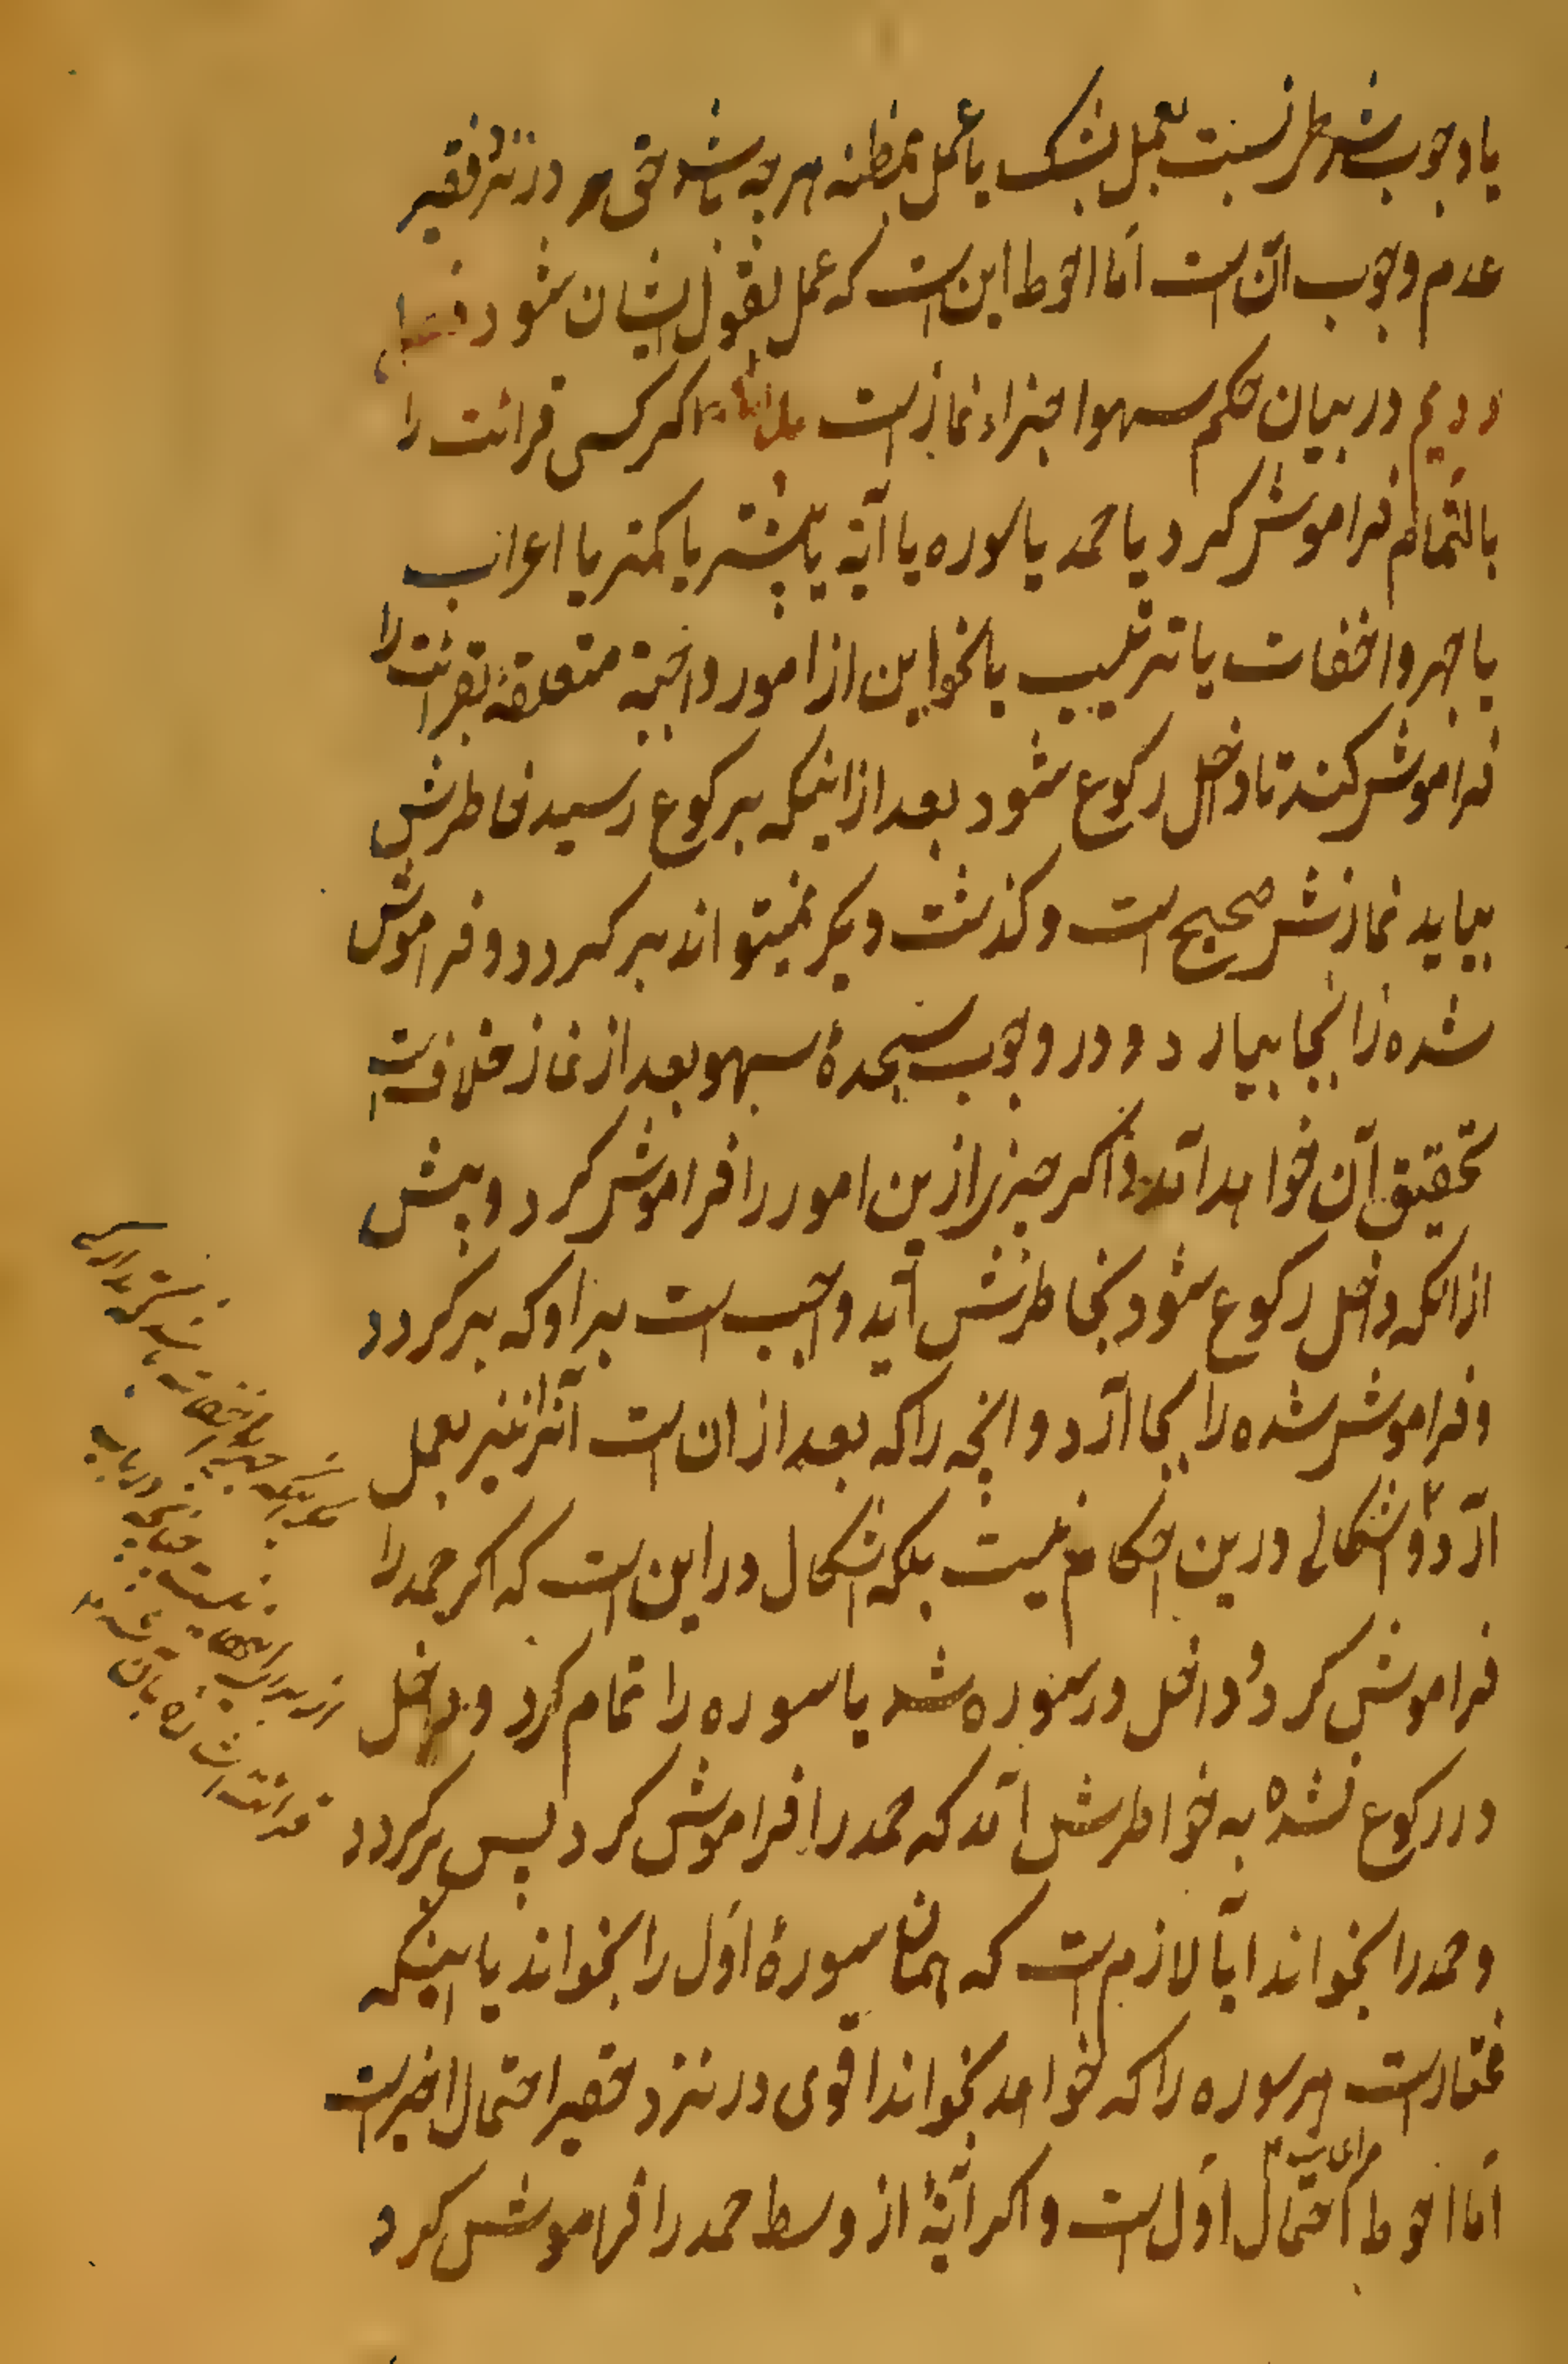 یا وجوب شرط نسبت بعمل بشک یا عمل بمظنه هرچه باشد حق در نزد فقیر
عدم وجوب آن است اما احوط این است که عمل بقول ایشان شود
دویم در بیان حکم سهو اجزاء نماز است بدانکه اگر کسی قرائت را
بالتمام فراموش کرد یا حمد یا سوره یا آیه یا بیشتر یا کمتر یا اعراب
یا جهر و اخفات یا ترتیب یا نحو این از امور واجبه متعلقه بقرائت را
فراموش کند تا داخل رکوع شود بعد از اینکه برکوع رسید بخاطرش
بیاید نمازش صحیح است و کذشت دیکر نمیتواند برکردد و فراموش
شده را بجا بیارد و در وجوب سجدهٔ سهو بعد از نماز خلاف است
تحقیق آن خواهد آمد و اکر چیزی ازین امور را فراموش کرد و پیش
از انکه داخل رکوع شود بخاطرش آید واجب است بر او که برکردد
و فراموش شده را بجا آرد و انچه را که بعد از ان است آنرا نیز بعمل
آرد و اشکالی درین احکام نیست بلکه اشکال در این است که اکر حمد را
فراموش کرد و داخل در سوره شد یا سوره را تمام کرد و داخل
در رکوع نشده به خواطرش آمد که حمد را فراموش کرد پس برکردد
و حمد را بخواند ایا لازم است که همان سورهٔ اول را بخواند یا اینکه
مختار است هر سوره را که خواهد بخواند اقوی در نزد حقیر احتمال اخیر است
اما احوط احتمال اول است و اکر آیهٔ از وسط حمد را فراموش کرد